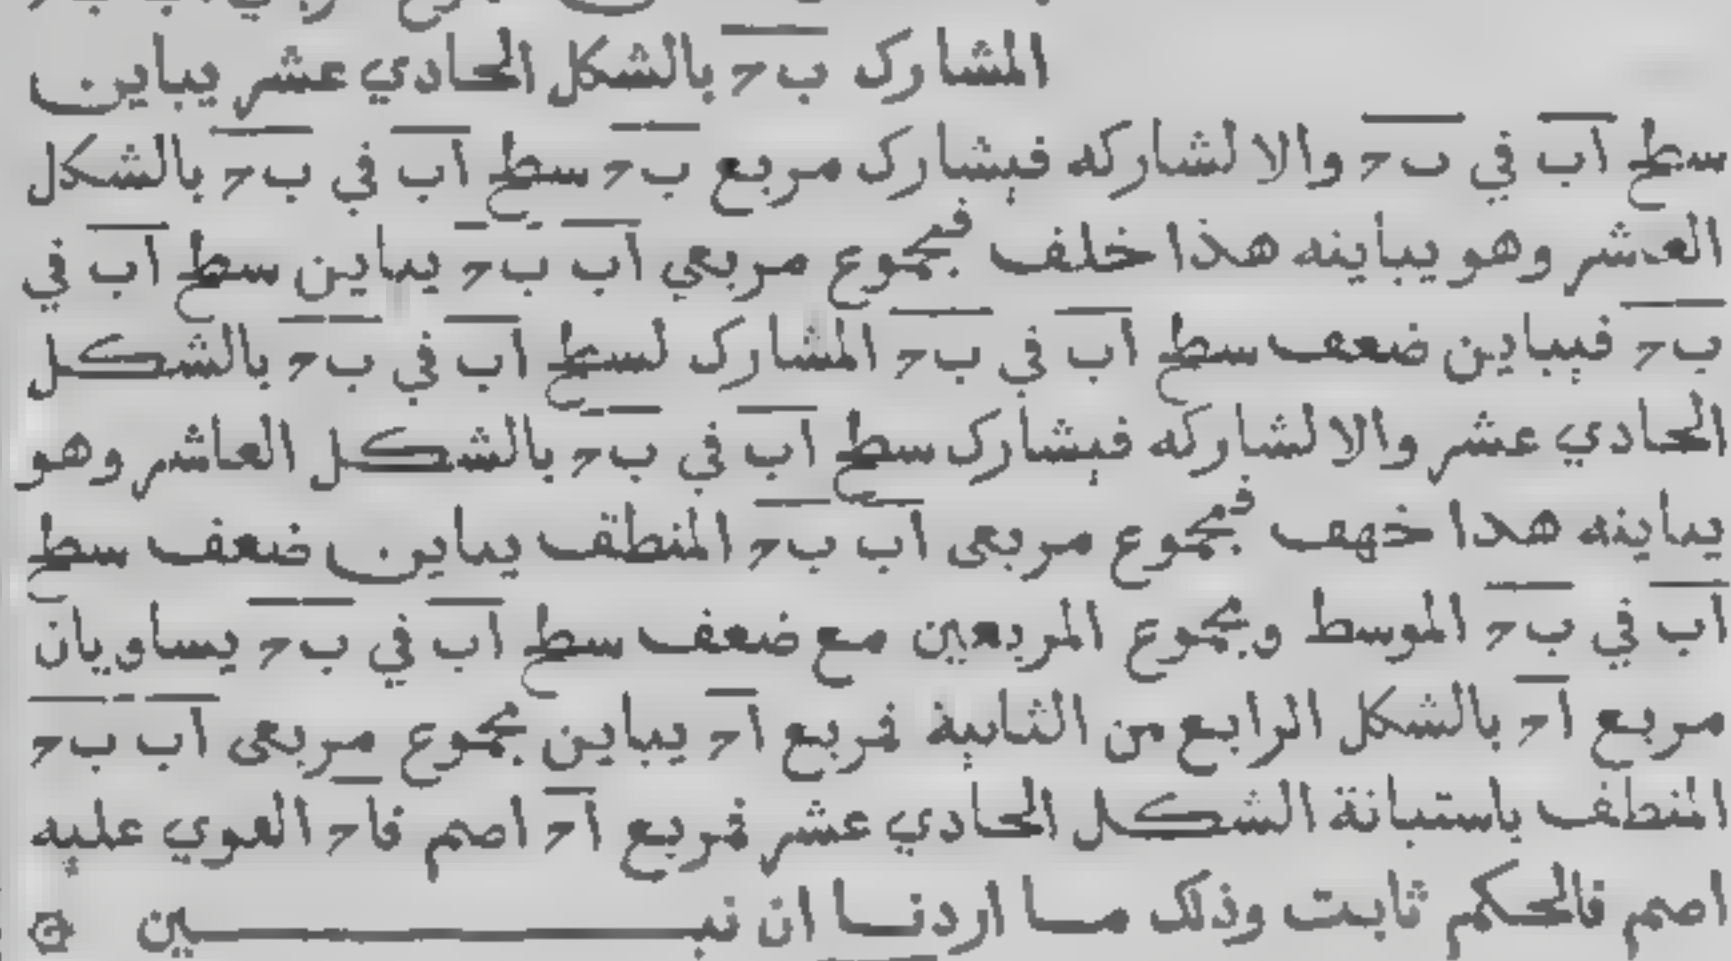 المشارك ب ح بالشكل الحادي عشر يباين
سطح اب في ب ح والا لشاركه فيشارك مربع ب ح سطح اب في ب ح بالشكل
العشر وهو يباينه هذا خلف فمجموع مربعي اب ب ح يباين سطح اب في
ب ح فيباين ضعف سطح اب في ب ح المشارك لسطح اب في ب ح بالشكل
الحادي عشر والا لشاركه فيشارك سطح اب في ب ح بالشكل العاشر وهو
يباينه هذا فمجموع مربعى اب ب ح المنطق يباين ضعف سطح
اب في ب ح الموسط ومجموع المربعين مع ضعف سطح اب في ب ح يساويان
مربع ا ح بالشكل الرابع من الثانية فمربع ا ح يباين مجموع مربعى اب ب ح
المنطق باستبانة الشكل الحادي عشر فمربع ا ح اصم فا ح القوي عليه
اصم فالحكم ثابت وذلك ما اردنا ان نبين